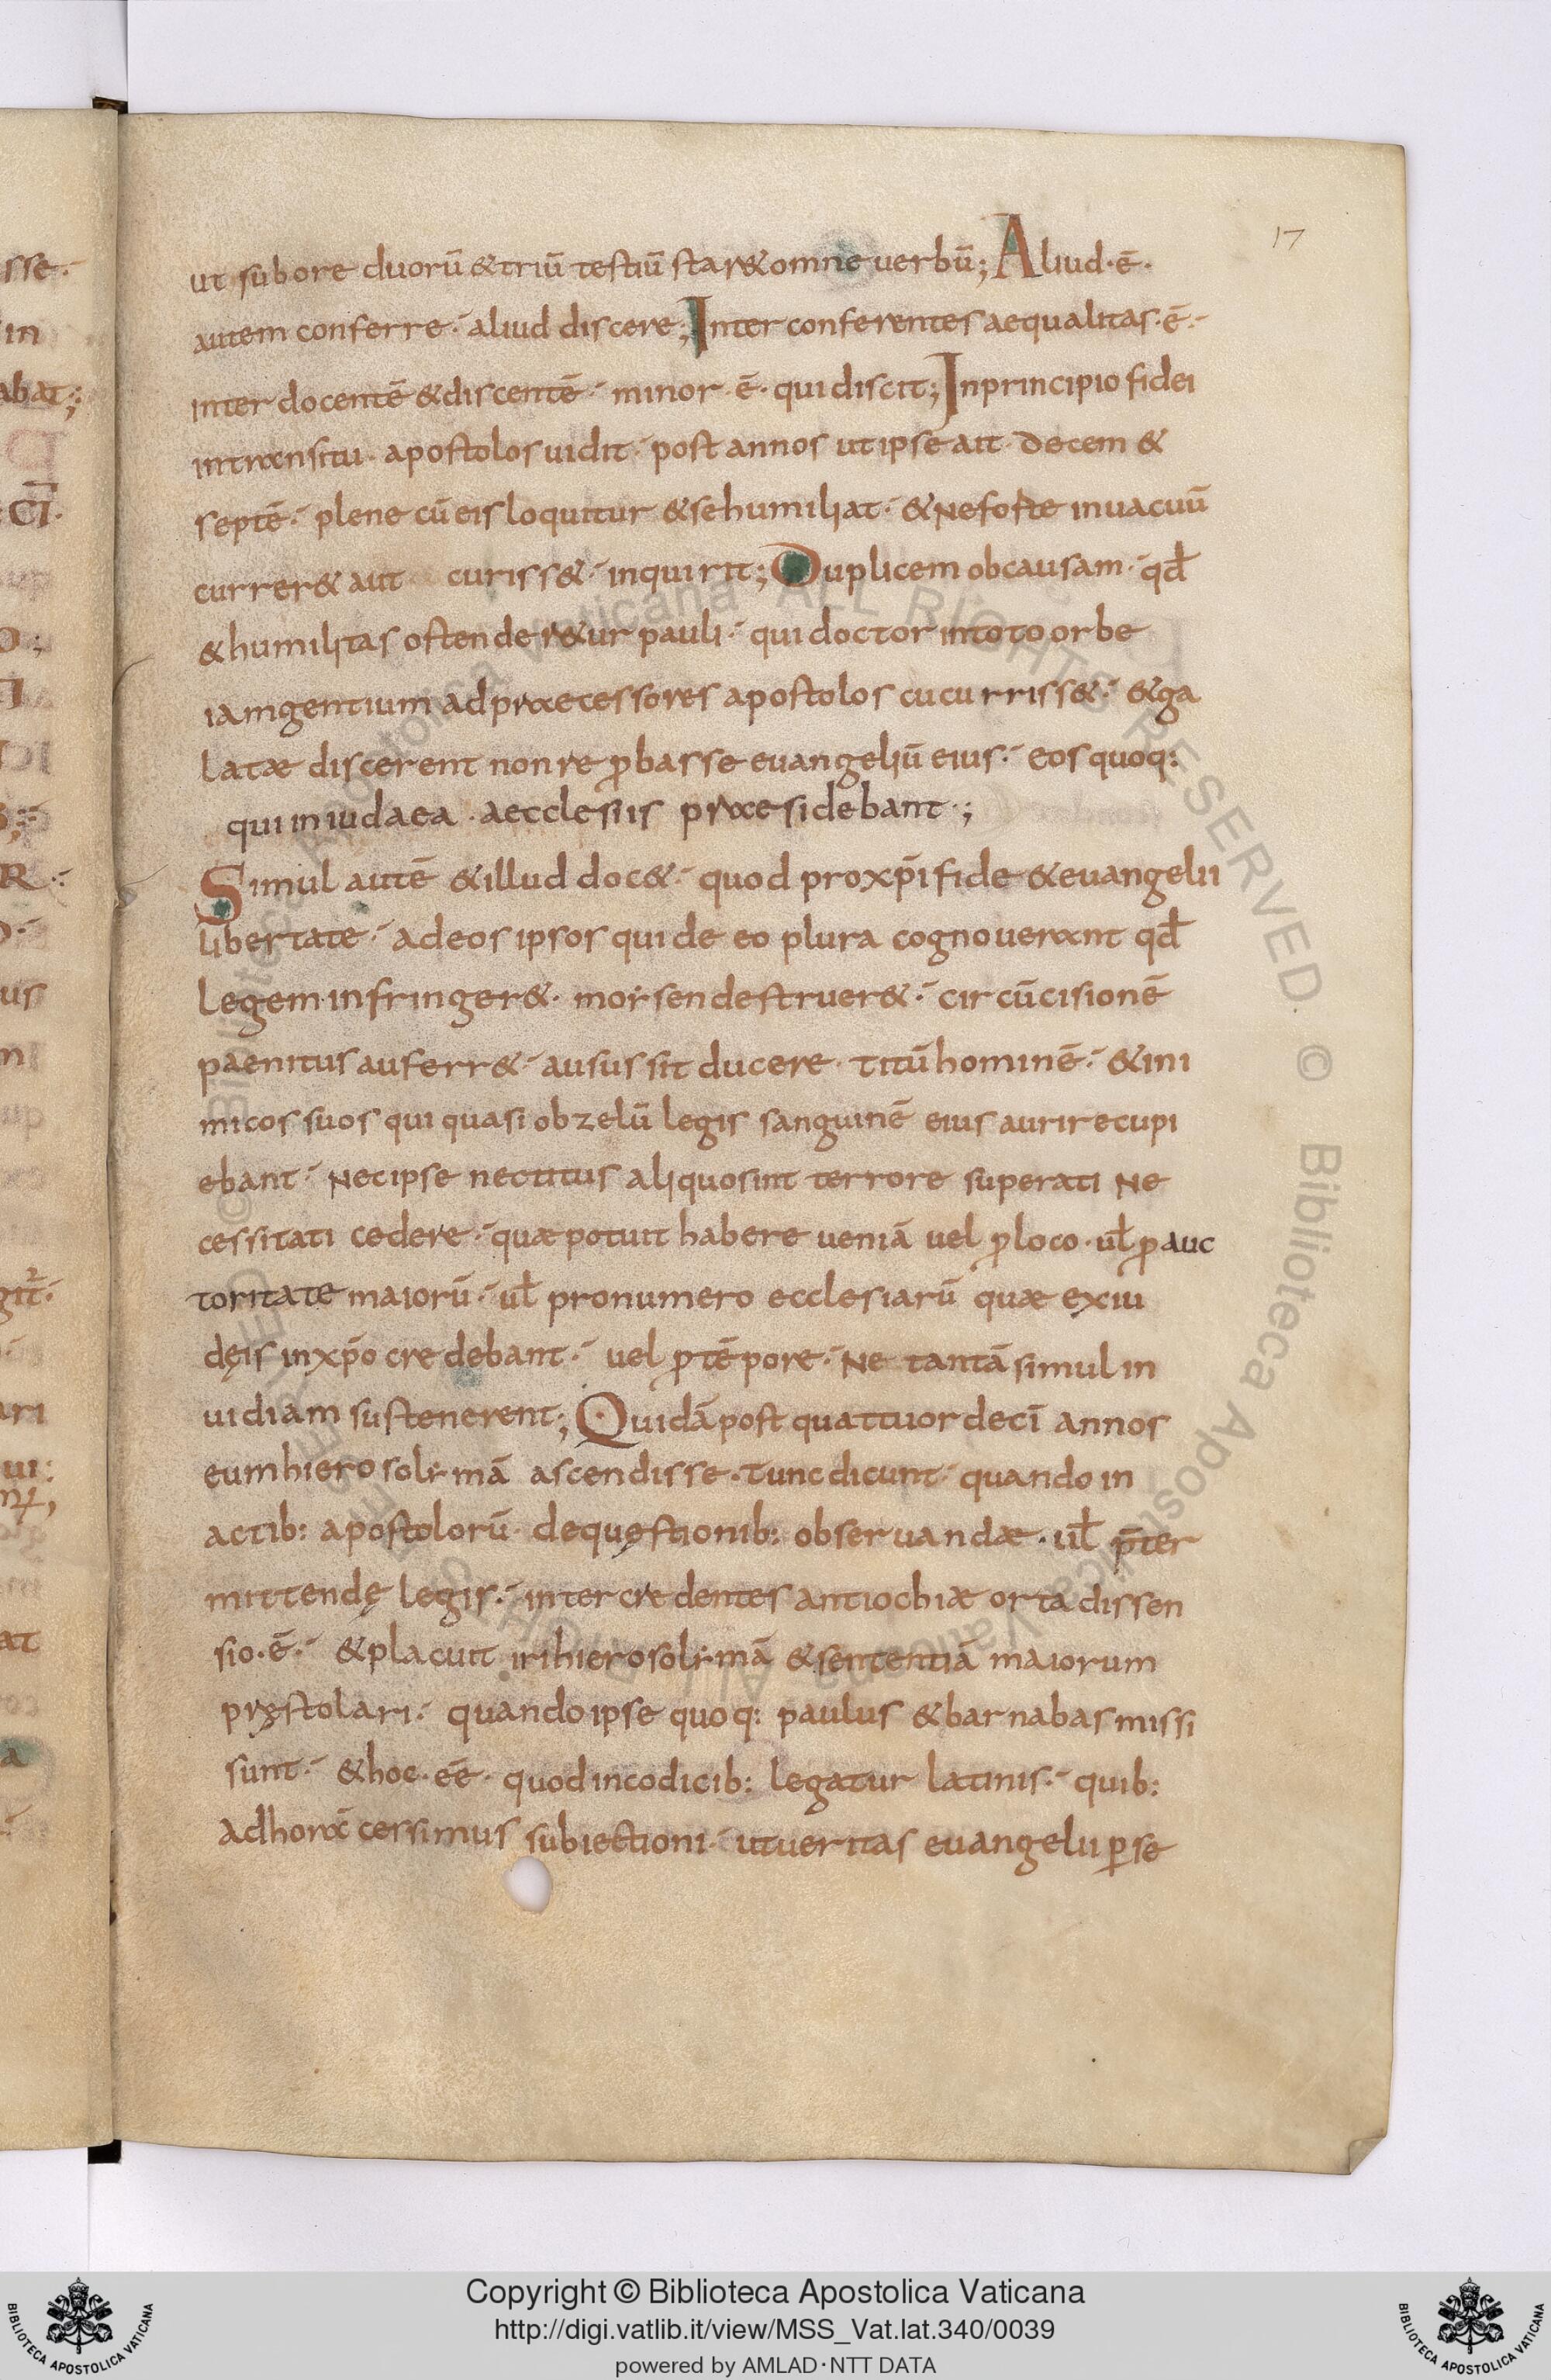 17
ut sub ore duorū & triū testiū star& omne uerbū; Aliud · ē ·
autem conferre · aliud discere; Inter conferentes aequalitas · ē ·
inter docentē & discentē · minor · ē · qui discit; In principio fidei
in transitu · apostolos uidit · post annos ut ipse ait · decem &
septē · plene cū eis loquitur & se humiliat · & ne forte in uacuū
currer& aut curiss& · inquirit; Duplicem ob causam · qđ
& humilitas ostender&ur pauli · qui doctor in toto orbe
iam gentium ad praecessores apostolos cucurriss& · & ga
latae discerent non re ꝓbasse euangeliū eius · eos quoq:
qui in iudaea · aecclesiis praesidebant ·;
Simul autē & illud doc& · quod pro xp̄i fide & euangelii
libertate · ad eos ipsos qui de eo plura cognouerant qđ
legem infringer& · morsen destruer& · circūcisionē
paenitus auferr& · ausus sit ducere · titū hominē · & ini
micos suos qui quasi ob zelū legis sanguinē eius aurire cupi
ebant · nec ipse nec titus aliquo sint terrore superati ne
cessitati cedere · quae potuit habere ueniā uel ꝓ loco · uł ꝓ auc
toritate maiorū · uł pro numero ecclesiarū quae ex iu
dęis in xp̄o credebant · uel ꝓ tēpore · ne tantā simul in
uidiam sustenerent; Quidā post quattuordecī annos
eum hierosolimā ascendisse · tunc dicunt · quando in
actib: apostolorū · de quęstionib: obseruandae · uł p̄ter
mittendę legis · inter credentes antiochiae orta dissen
sio · ē · & placuit iri hierosolimā & sententiā maiorum
pręstolari · quando ipse quoq: paulus & barnabas missi
sunt · & hoc · eē · quod in codicib: legatur latinis · quib:
ad horā cessimus subiectioni · ut ueritas euangelii ꝑse
Copyright © Biblioteca Apostolica Vaticana
http://digi.vatlib.it/view/MSS_Vat.lat.340/0039
powered by AMLAD·NTT DATA